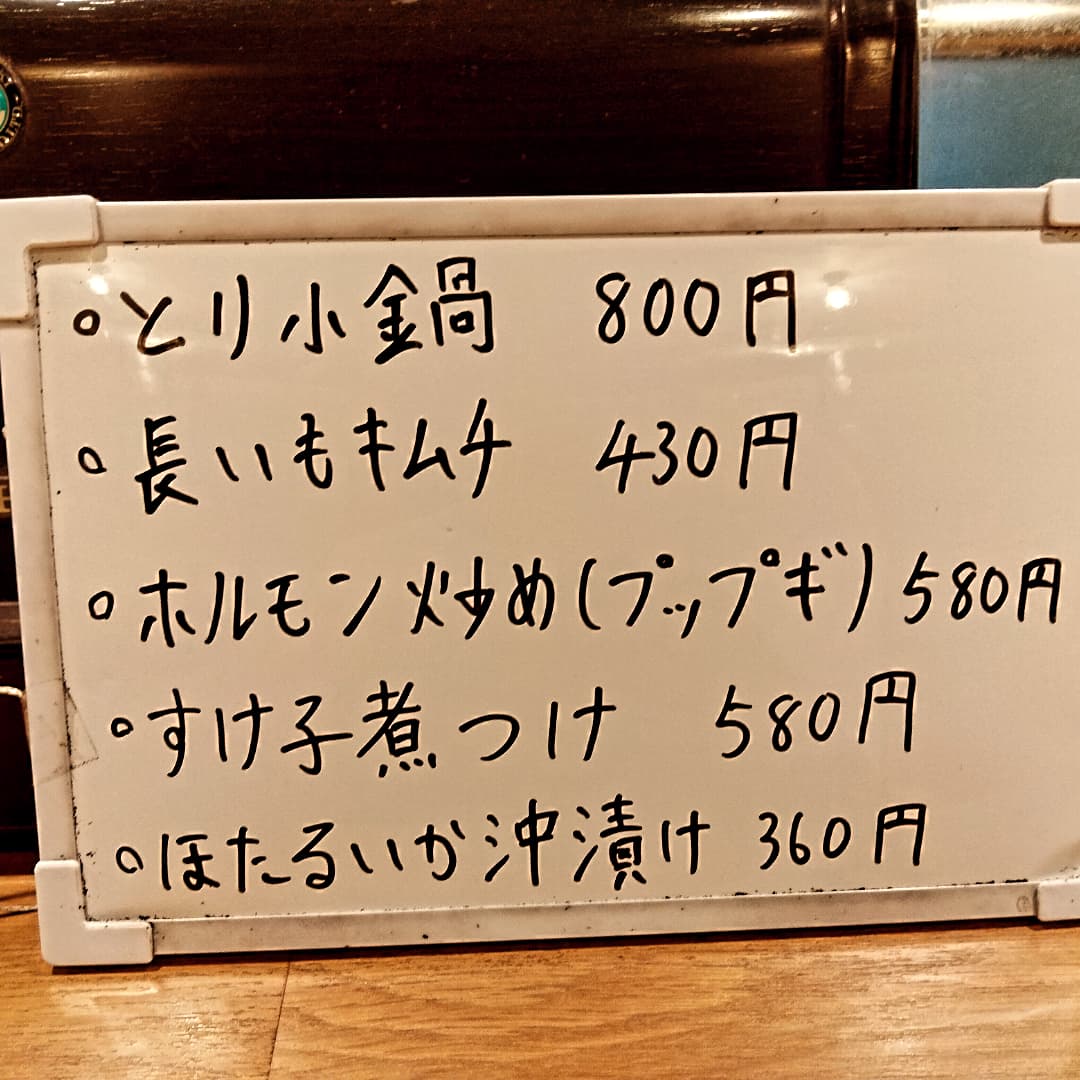 ◦とり小鍋 800円
◦長いもキムチ 430円
◦ホルモン炒め(プップギ) 580円
◦すけ子煮つけ 580円
◦ほたるいか沖漬け 360円